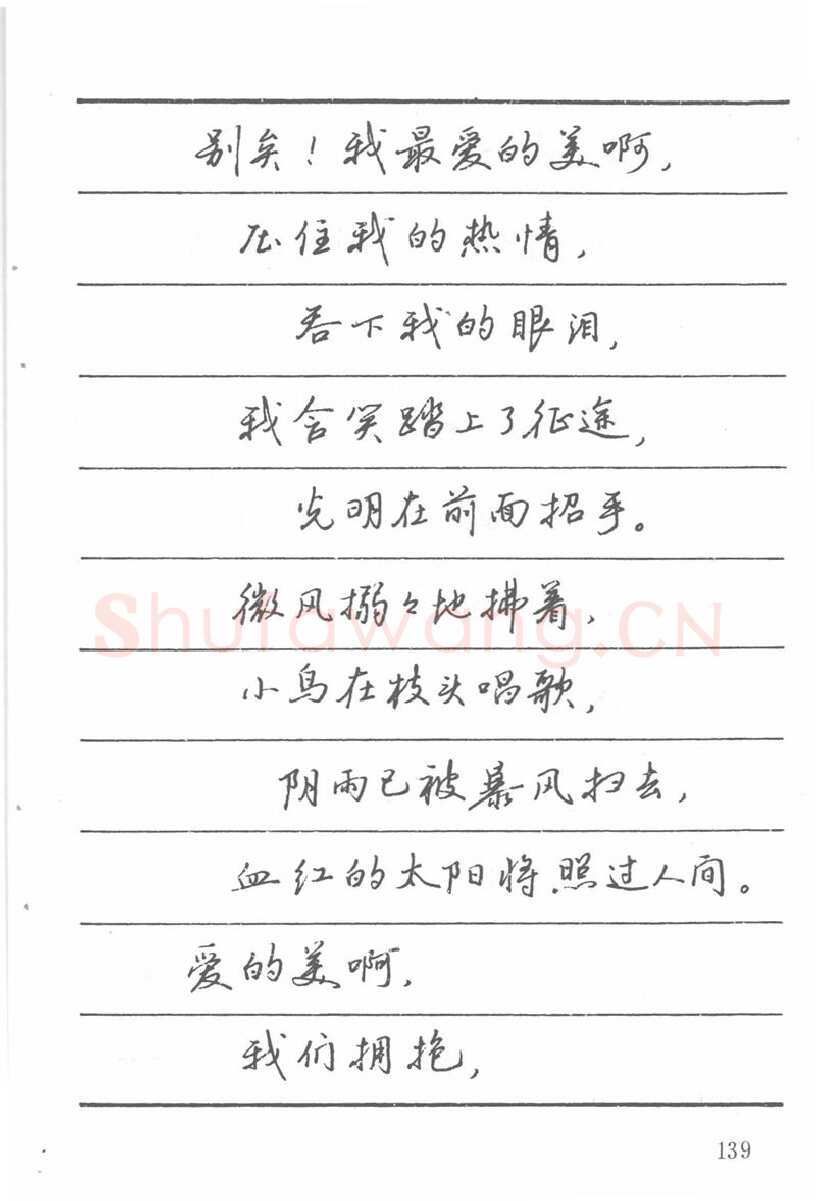 别矣！我最爱的美啊，
压住我的热情，
吞下我的眼泪，
我含笑踏上了征途，
光明在前面招手。
微风搦々地拂着，
小鸟在枝头唱歌，
阴雨已被暴风扫去，
血红的太阳将照过人间。
爱的美啊，
我们拥抱，
139
Shufawang.CN